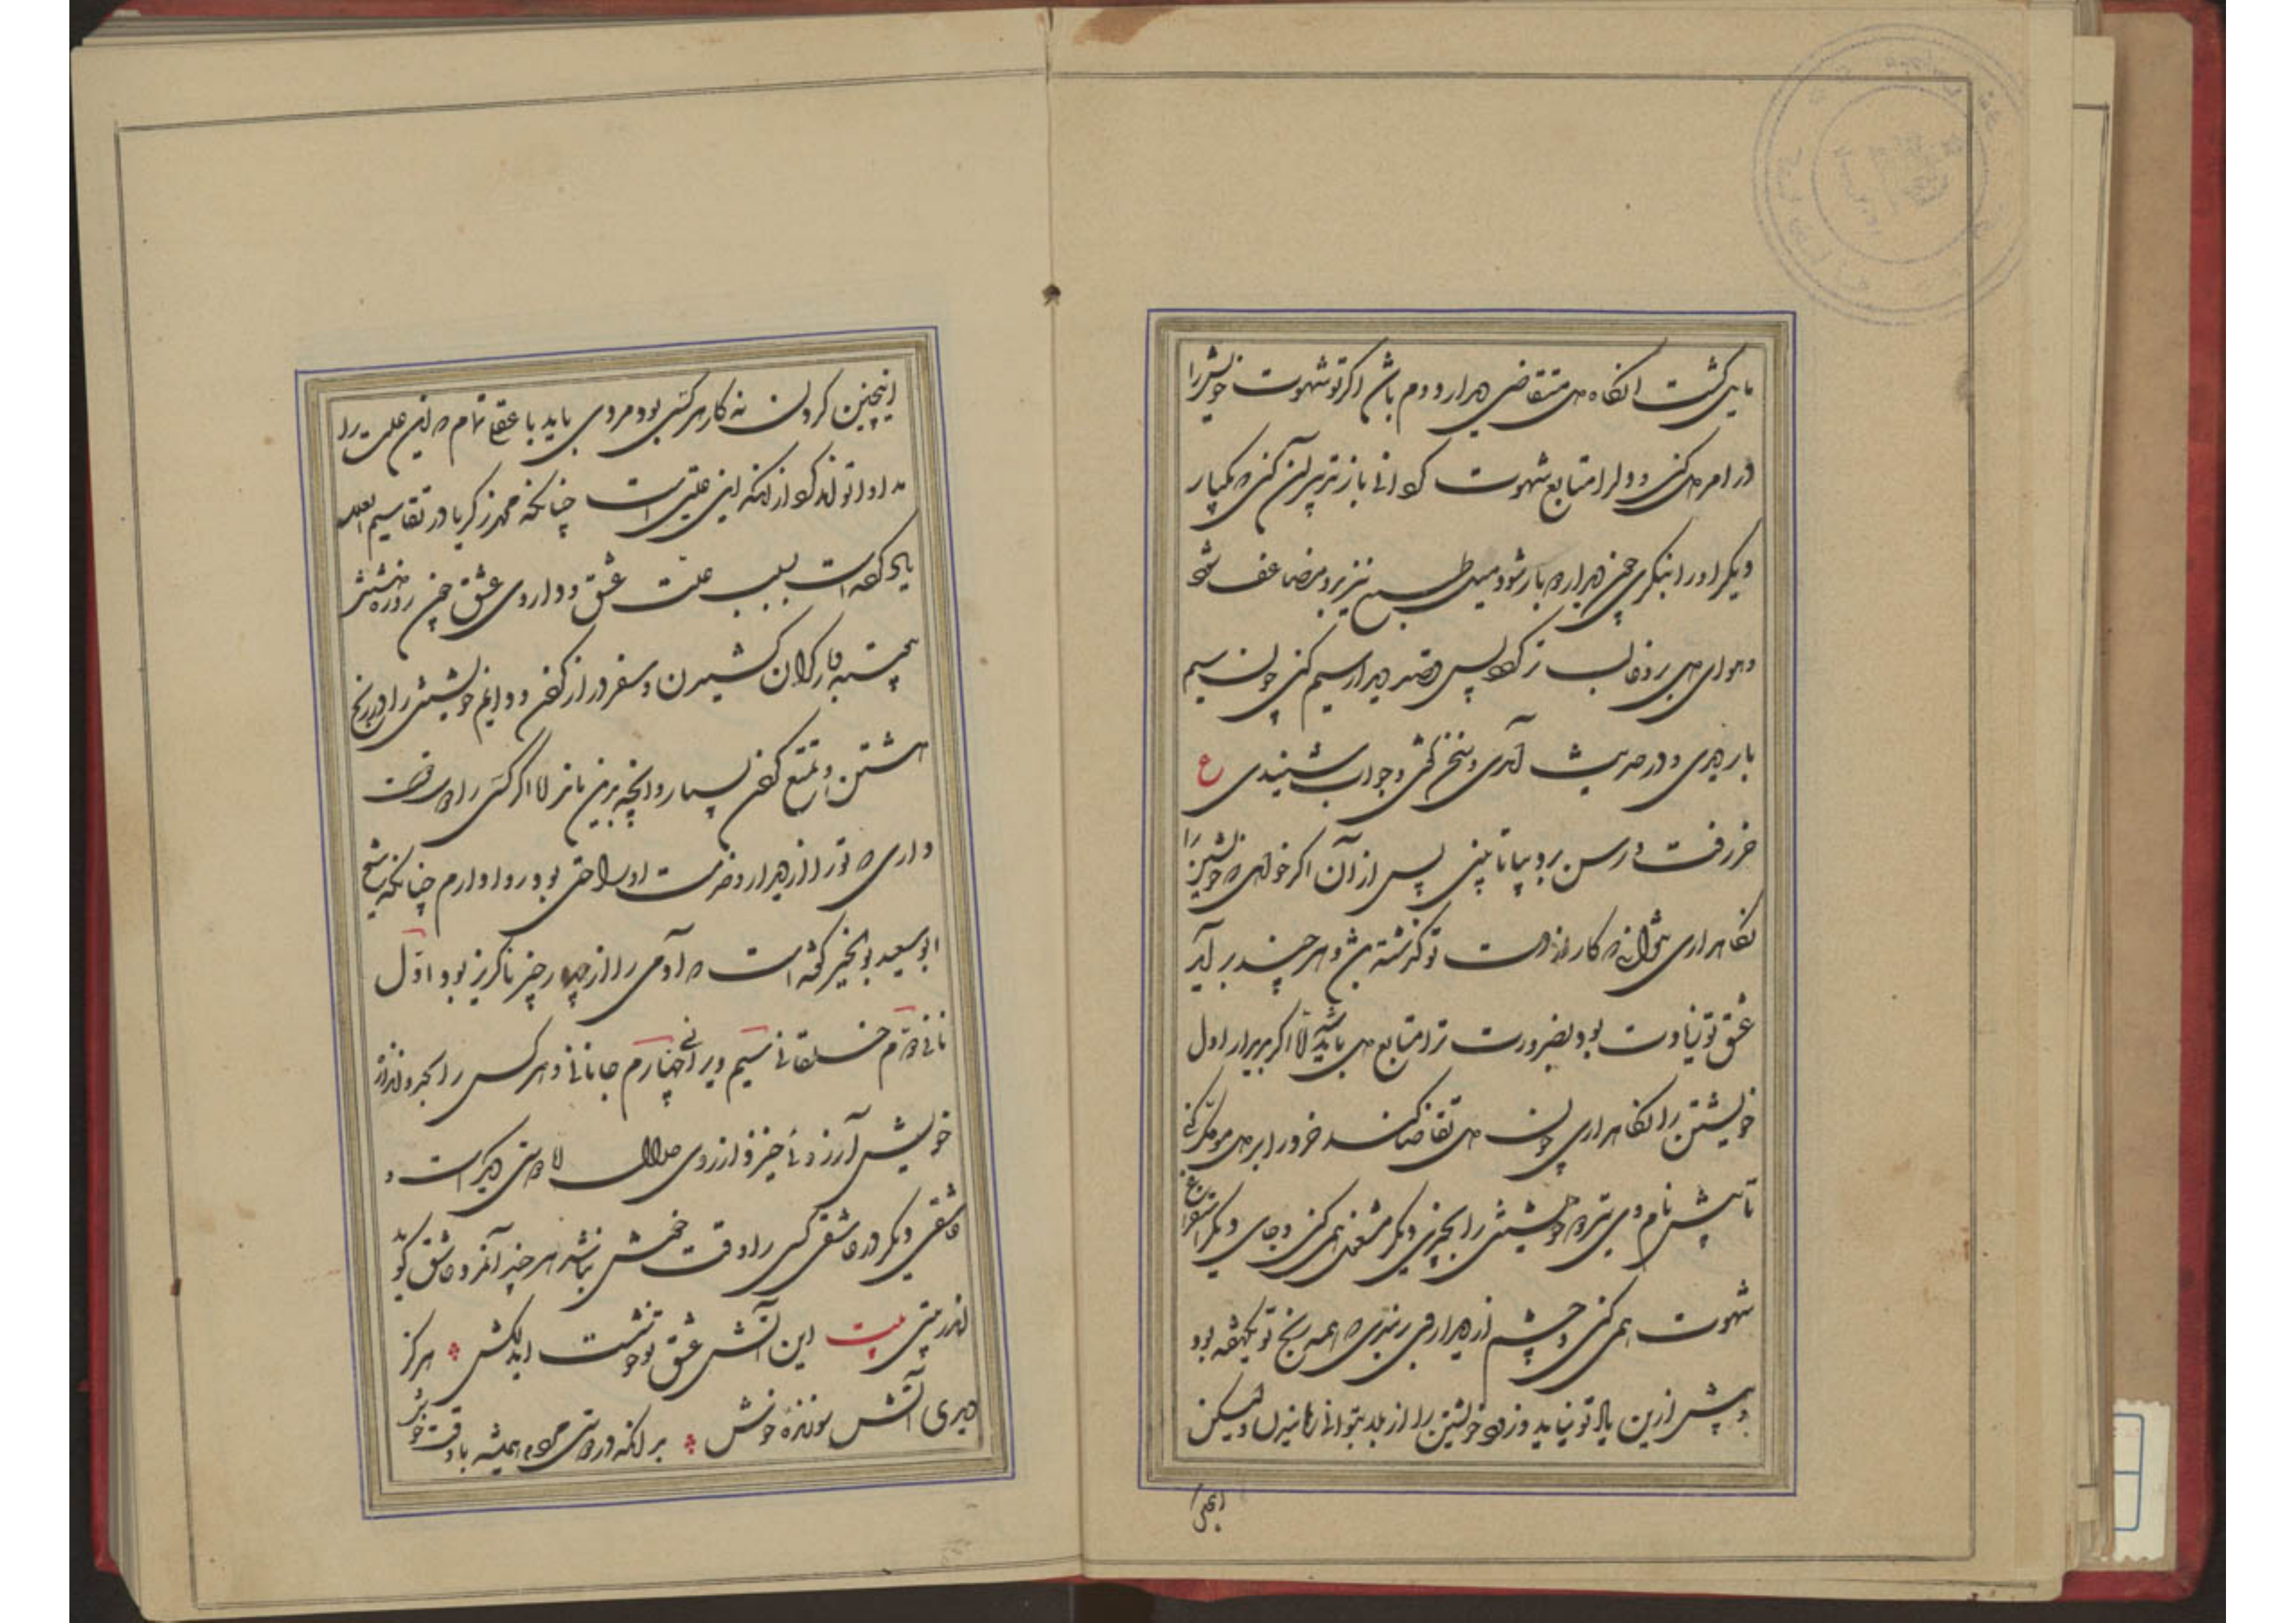 مایل گشت انگاه دل متقاضی دیدار دوم باشد اگر تو شهوت خویش را
در امر دل کنی و دل را متابع شهوت کردانی باز تدبیر آن کنی که یکبار
دیگر او را بنگری چون دیدار دوباره شود میل طبع نیز بدو مضاعف شود
و هوای دل بر تو غالب تر گردد پس قصد دیدار سیم کنی چون سیم
بار دیدی و در حدیث آمدی و سخن گفتی و جواب شنیدی ع
خر رفت و رسن برد بیا تا بینی پس از آن اگر خواهی که خویشتن را
نگاهداری نتوانی که کار از دست تو گذشته باشد و هر چند بر آید
عشق تو زیادت بود بضرورت ترا متابع دل باید شد اما اگر بدیدار اول
خویشتن را نگاهداری چون دل تقاضا کند خرد را بر دل موکل کنی
تا بیش نام وی نبرد و خویشتن را بچیزی دیگر مشغول همی کنی و جای دیگر استفراغ
شهوت همی کنی و چشم از دیدار وی بربندی که همه رنج تو یکهفته بود
و بیش ازین یاد تو نیاید و زود خویشتن را از بلا بتوانی رهانیدن ولیکن
اینچنین کردن نه کار هر کسی بود مردی باید با عقل تمام که این علت را
مداوا تواند کرد از آنکه این علتی است چنانکه محمد زکریا در تقاسیم العلل
یاد کرده است سبب علت عشق و داروی عشق چون روزه داشتن
پیوسته و بار گران کشیدن و سفر دراز کردن و دایم خویشتن را در رنج
داشتن و تمتع کردن بسیار و آنچه بدین ماند اما اگر کسی را دوست
داری که ترا از دیدار و خدمت او راحتی بود روا دارم چنانکه شیخ
ابو سعید بو الخیر گفته است که آدمی را از چهار چیز ناگزیر بود اول
نانی دوم خلقانی سیم ویرانی چهارم جانانی و هر کس را بحد و اندازه
خویش آرزوئی خیزد از روی حلال اما دوستی دیگر است و
عاشقی دیگر در عاشقی کسی را وقت خوش نباشد هر چند آنمرد عاشق گوید
اندر بیتی بیت این آتش عشق تو خوشست ایدلکش هرگز
دیدی آتش سوزنده خوش بدانکه در دوستی مردم همیشه با وقت خوش بود
اینچنین